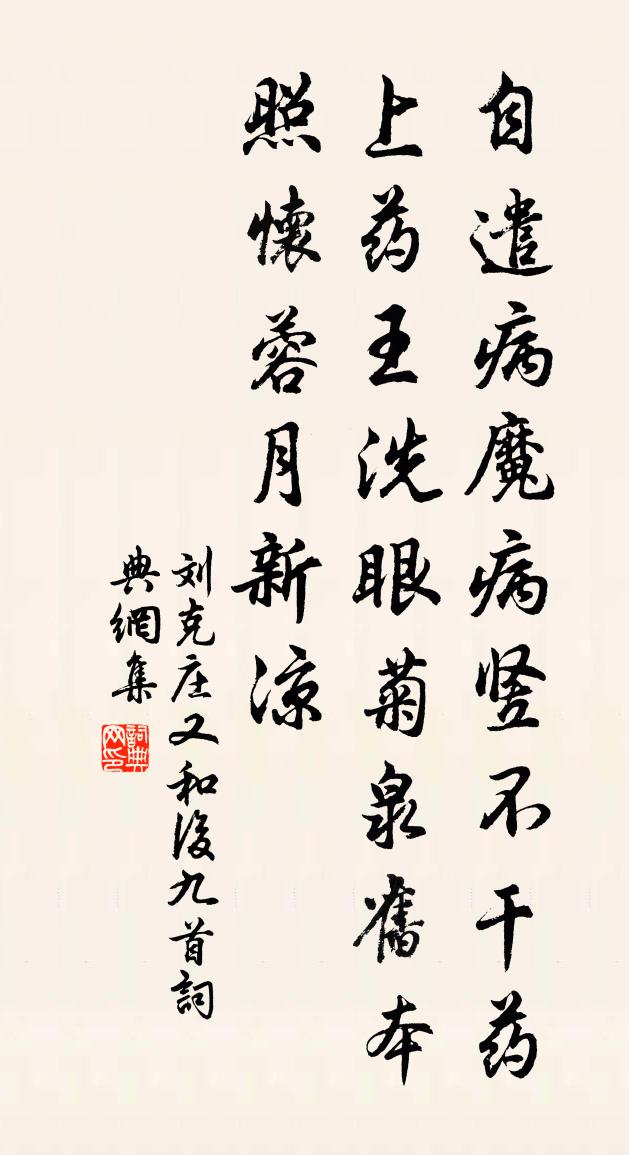 自遣病魔病竖不干药
上药王洗眼菊泉舊本
照懷蓉月新凉
刘克庄又和後九首詞
典網集
詞典网印